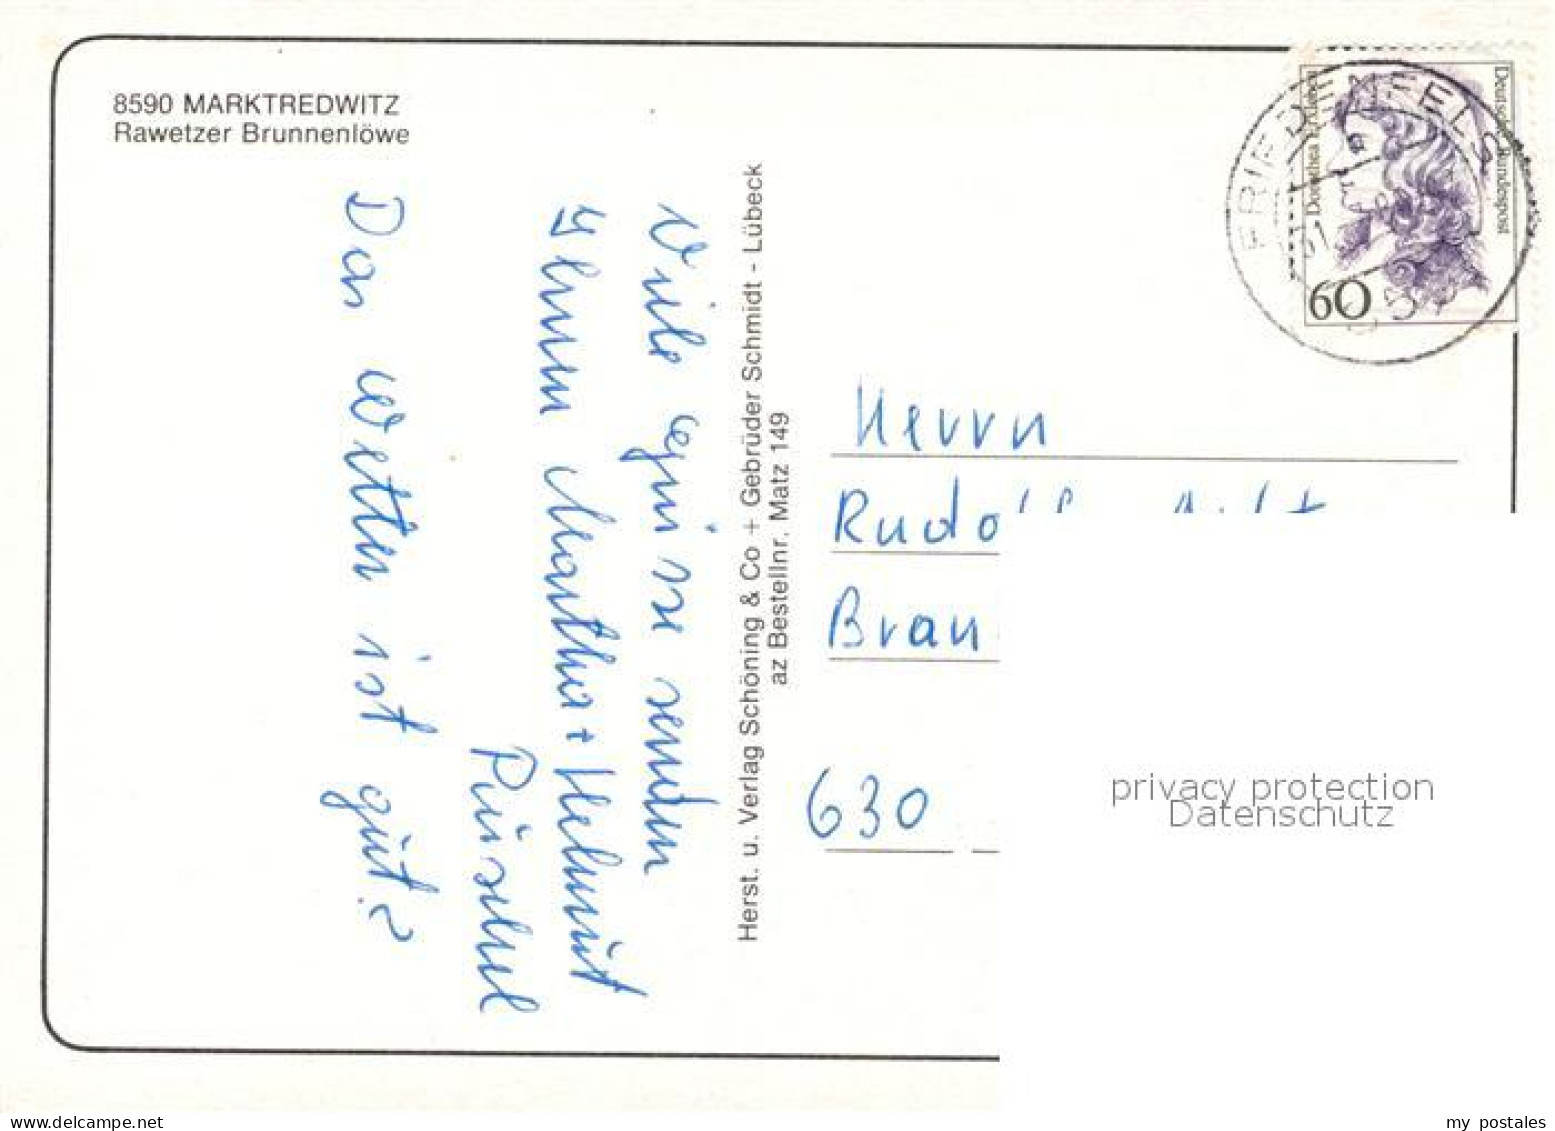 8590 MARKTREDWITZ
Rawetzer Brunnenlöwe
Viele Grüsse senden
Ihnen Martha + Helmut
Püschel
Das Wetter ist gut.
Herst. u. Verlag Schöning & Co + Gebrüder Schmidt - Lübeck
az Bestellnr. Matz 149
Deutsche Bundespost
Dorothea Erxleben
60
FRIEDENFELS
Herrn
Rudolf
Brau
630
privacy protection
Datenschutz
delcampe.net
my_postales